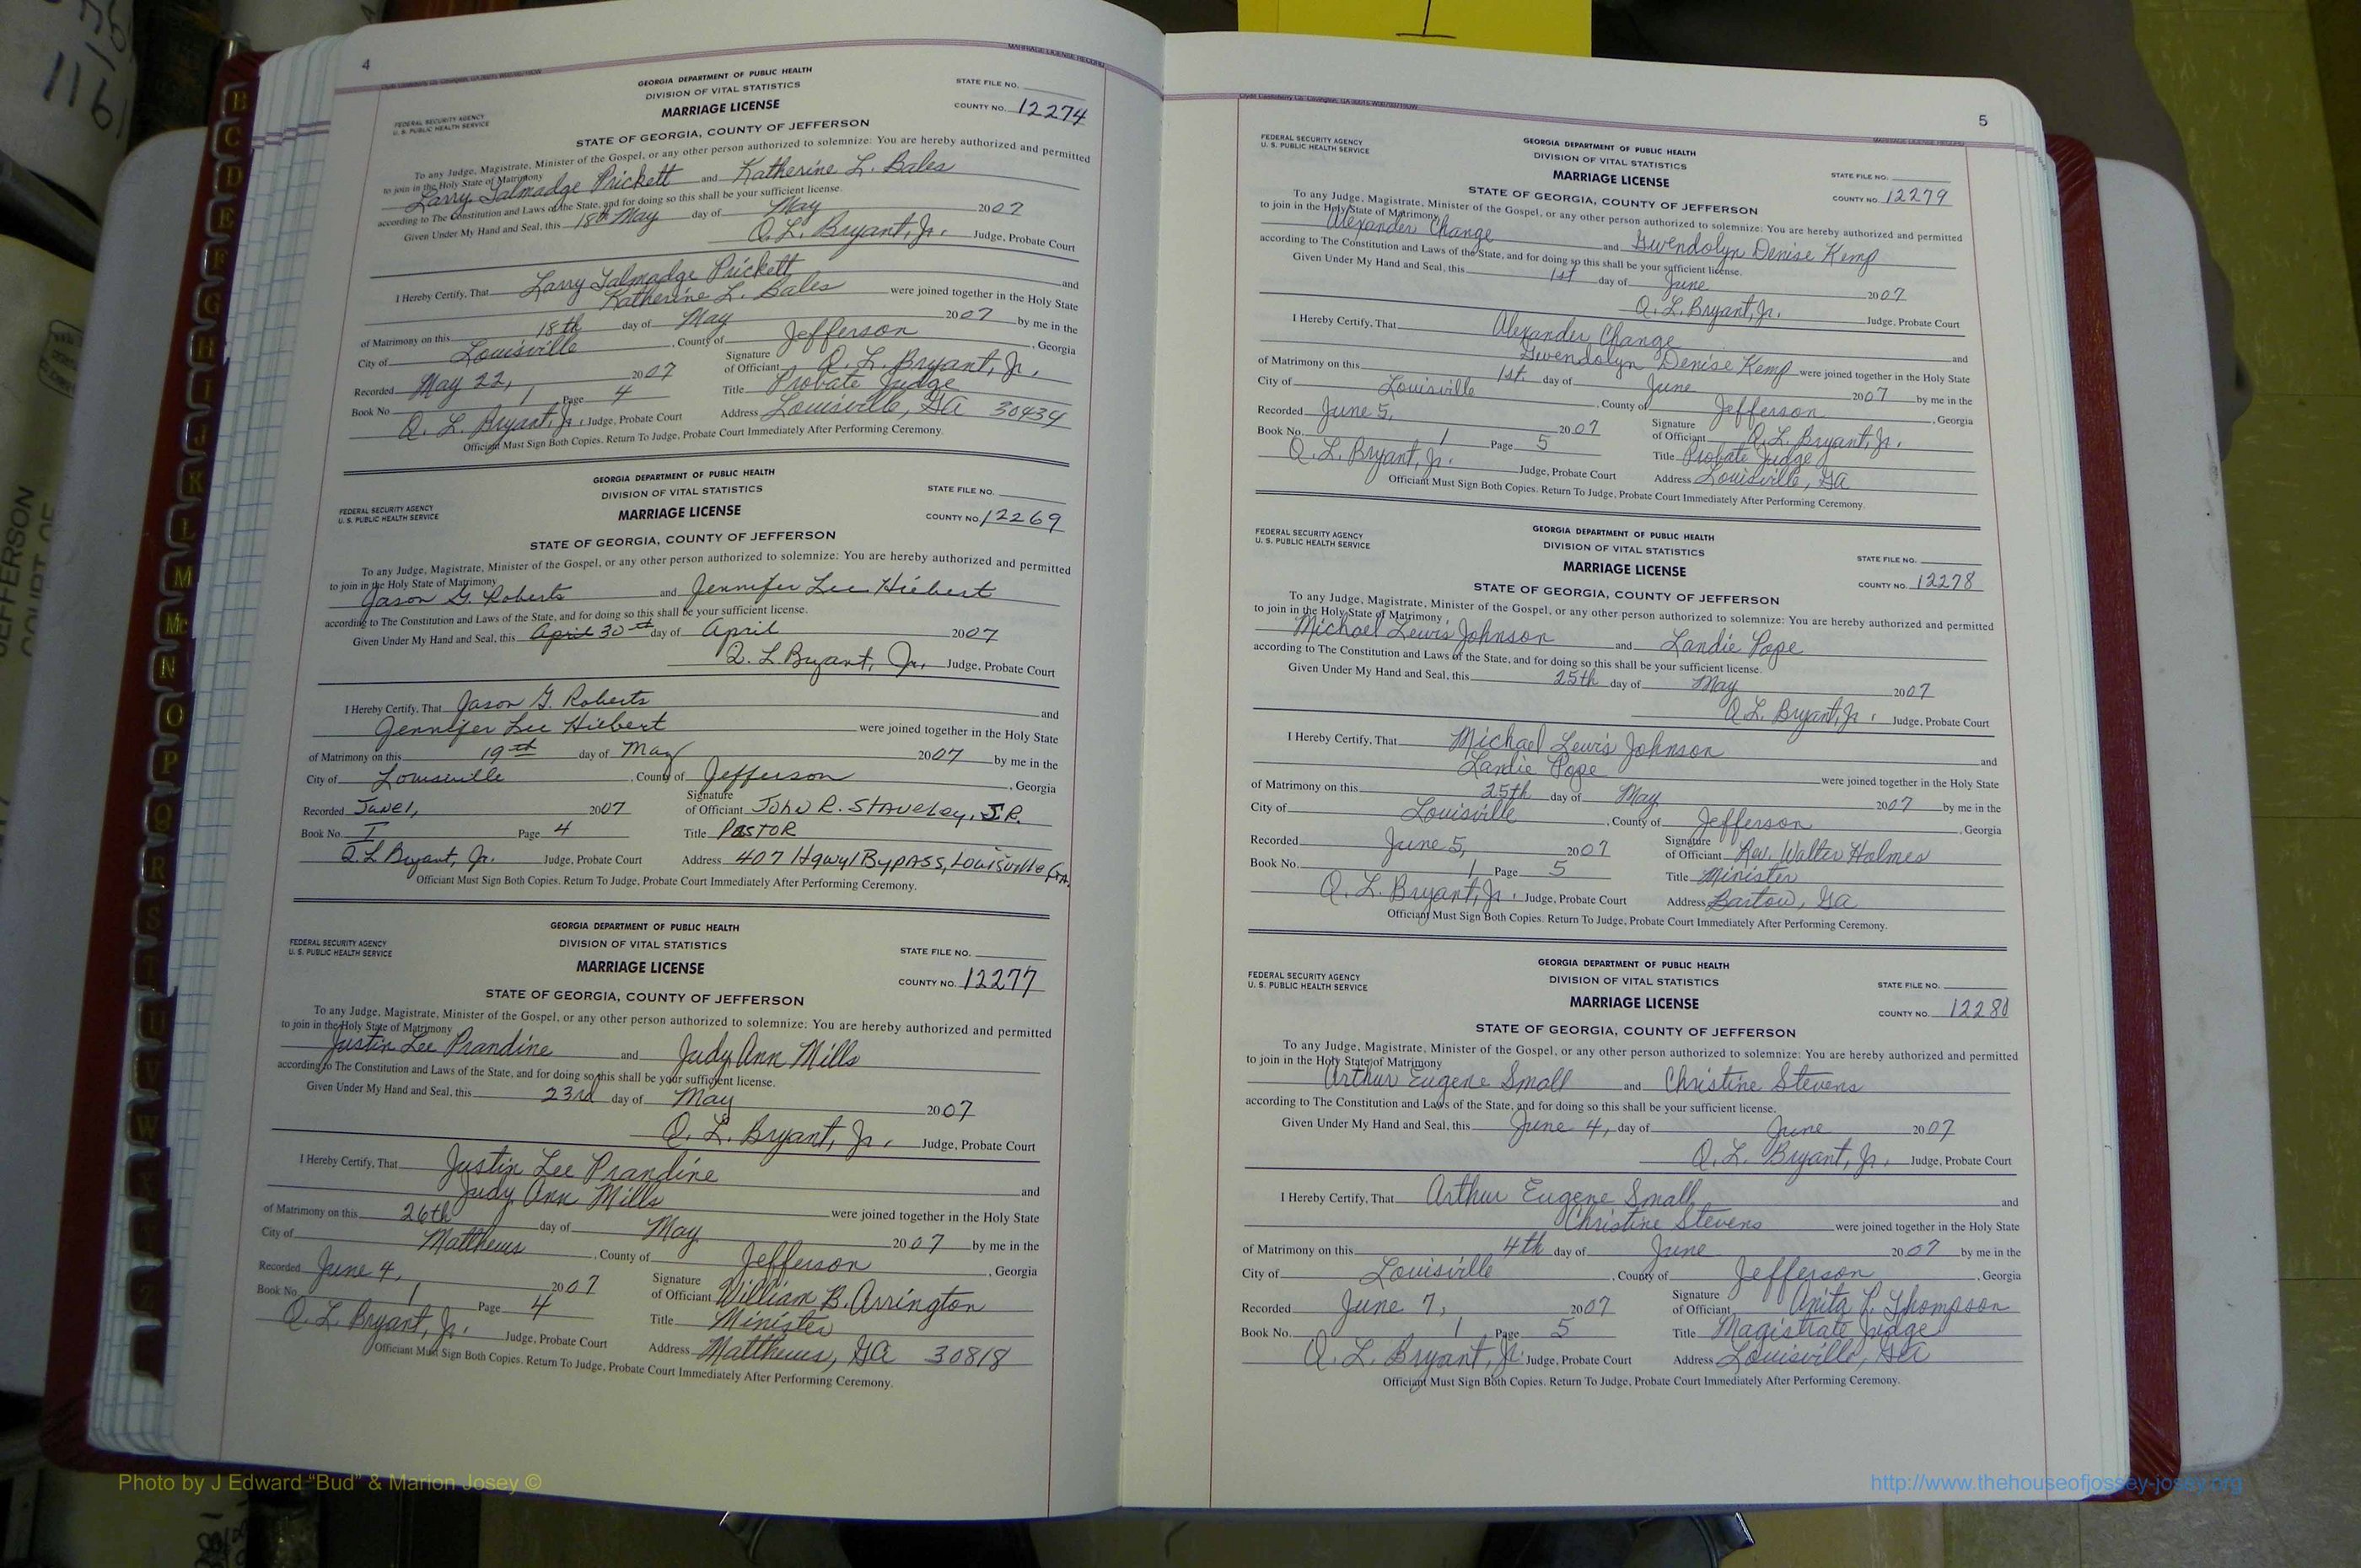 4
MARRIAGE LICENSE RECORD
GEORGIA DEPARTMENT OF PUBLIC HEALTH
DIVISION OF VITAL STATISTICS
MARRIAGE LICENSE
STATE FILE NO.
COUNTY NO. 12274
FEDERAL SECURITY AGENCY
U. S. PUBLIC HEALTH SERVICE
STATE OF GEORGIA, COUNTY OF JEFFERSON
To any Judge, Magistrate, Minister of the Gospel, or any other person authorized to solemnize: You are hereby authorized and permitted
to join in the Holy State of Matrimony
Larry Talmadge Prickett and Katherine L. Bales
according to The Constitution and Laws of the State, and for doing so this shall be your sufficient license.
Given Under My Hand and Seal, this 18th May day of May 2007
Q. L. Bryant, Jr. Judge, Probate Court
I Hereby Certify, That Larry Talmadge Prickett and
Katherine L. Bales were joined together in the Holy State
of Matrimony on this 18th day of May 2007 by me in the
City of Louisville, County of Jefferson, Georgia
Recorded May 22, 2007 Signature of Officiant Q. L. Bryant, Jr.
Book No. 1 Page 4 Title Probate Judge
Q. L. Bryant, Jr. Judge, Probate Court Address Louisville, GA 30434
Officiant Must Sign Both Copies. Return To Judge, Probate Court Immediately After Performing Ceremony.
GEORGIA DEPARTMENT OF PUBLIC HEALTH
DIVISION OF VITAL STATISTICS
MARRIAGE LICENSE
STATE FILE NO.
COUNTY NO. 12269
FEDERAL SECURITY AGENCY
U. S. PUBLIC HEALTH SERVICE
STATE OF GEORGIA, COUNTY OF JEFFERSON
To any Judge, Magistrate, Minister of the Gospel, or any other person authorized to solemnize: You are hereby authorized and permitted
to join in the Holy State of Matrimony
Jason G. Roberts and Jennifer Lee Hiebert
according to The Constitution and Laws of the State, and for doing so this shall be your sufficient license.
Given Under My Hand and Seal, this April 30th day of April 2007
Q. L. Bryant, Jr. Judge, Probate Court
I Hereby Certify, That Jason G. Roberts and
Jennifer Lee Hiebert were joined together in the Holy State
of Matrimony on this 19th day of May 2007 by me in the
City of Louisville, County of Jefferson, Georgia
Recorded June 1, 2007 Signature of Officiant John R. Staveley, SR.
Book No. I Page 4 Title Pastor
Q. L. Bryant, Jr. Judge, Probate Court Address 407 Hgwy 1 Bypass, Louisville Ga.
Officiant Must Sign Both Copies. Return To Judge, Probate Court Immediately After Performing Ceremony.
GEORGIA DEPARTMENT OF PUBLIC HEALTH
DIVISION OF VITAL STATISTICS
MARRIAGE LICENSE
STATE FILE NO.
COUNTY NO. 12277
FEDERAL SECURITY AGENCY
U. S. PUBLIC HEALTH SERVICE
STATE OF GEORGIA, COUNTY OF JEFFERSON
To any Judge, Magistrate, Minister of the Gospel, or any other person authorized to solemnize: You are hereby authorized and permitted
to join in the Holy State of Matrimony
Justin Lee Prandine and Judy Ann Mills
according to The Constitution and Laws of the State, and for doing so this shall be your sufficient license.
Given Under My Hand and Seal, this 23rd day of May 2007
Q. L. Bryant, Jr. Judge, Probate Court
I Hereby Certify, That Justin Lee Prandine and
Judy Ann Mills were joined together in the Holy State
of Matrimony on this 26th day of May 2007 by me in the
City of Matthews, County of Jefferson, Georgia
Recorded June 4, 2007 Signature of Officiant William B. Arrington
Book No. 1 Page 4 Title Minister
Q. L. Bryant, Jr. Judge, Probate Court Address Matthews, GA 30818
Officiant Must Sign Both Copies. Return To Judge, Probate Court Immediately After Performing Ceremony.
5
MARRIAGE LICENSE RECORD
FEDERAL SECURITY AGENCY
U. S. PUBLIC HEALTH SERVICE
GEORGIA DEPARTMENT OF PUBLIC HEALTH
DIVISION OF VITAL STATISTICS
MARRIAGE LICENSE
STATE FILE NO.
COUNTY NO. 12279
STATE OF GEORGIA, COUNTY OF JEFFERSON
To any Judge, Magistrate, Minister of the Gospel, or any other person authorized to solemnize: You are hereby authorized and permitted
to join in the Holy State of Matrimony
Alexander Change and Gwendolyn Denise Kemp
according to The Constitution and Laws of the State, and for doing so this shall be your sufficient license.
Given Under My Hand and Seal, this 1st day of June 2007
Q. L. Bryant, Jr. Judge, Probate Court
I Hereby Certify, That Alexander Change and
Gwendolyn Denise Kemp were joined together in the Holy State
of Matrimony on this 1st. day of June 2007 by me in the
City of Louisville, County of Jefferson, Georgia
Recorded June 5, 2007 Signature of Officiant Q. L. Bryant, Jr.
Book No. 1 Page 5 Title Probate Judge
Q. L. Bryant, Jr. Judge, Probate Court Address Louisville, GA
Officiant Must Sign Both Copies. Return To Judge, Probate Court Immediately After Performing Ceremony.
FEDERAL SECURITY AGENCY
U. S. PUBLIC HEALTH SERVICE
GEORGIA DEPARTMENT OF PUBLIC HEALTH
DIVISION OF VITAL STATISTICS
MARRIAGE LICENSE
STATE FILE NO.
COUNTY NO. 12278
STATE OF GEORGIA, COUNTY OF JEFFERSON
To any Judge, Magistrate, Minister of the Gospel, or any other person authorized to solemnize: You are hereby authorized and permitted
to join in the Holy State of Matrimony
Michael Lewis Johnson and Landie Pope
according to The Constitution and Laws of the State, and for doing so this shall be your sufficient license.
Given Under My Hand and Seal, this 25th day of May 2007
Q. L. Bryant, Jr. Judge, Probate Court
I Hereby Certify, That Michael Lewis Johnson and
Landie Pope were joined together in the Holy State
of Matrimony on this 25th day of May 2007 by me in the
City of Louisville, County of Jefferson, Georgia
Recorded June 5, 2007 Signature of Officiant Rev. Walter Holmes
Book No. 1 Page 5 Title Minister
Q. L. Bryant, Jr. Judge, Probate Court Address Bartow, Ga
Officiant Must Sign Both Copies. Return To Judge, Probate Court Immediately After Performing Ceremony.
FEDERAL SECURITY AGENCY
U. S. PUBLIC HEALTH SERVICE
GEORGIA DEPARTMENT OF PUBLIC HEALTH
DIVISION OF VITAL STATISTICS
MARRIAGE LICENSE
STATE FILE NO.
COUNTY NO. 12280
STATE OF GEORGIA, COUNTY OF JEFFERSON
To any Judge, Magistrate, Minister of the Gospel, or any other person authorized to solemnize: You are hereby authorized and permitted
to join in the Holy State of Matrimony
Arthur Eugene Small and Christine Stevens
according to The Constitution and Laws of the State, and for doing so this shall be your sufficient license.
Given Under My Hand and Seal, this June 4, day of June 2007
Q. L. Bryant, Jr. Judge, Probate Court
I Hereby Certify, That Arthur Eugene Small and
Christine Stevens were joined together in the Holy State
of Matrimony on this 4th day of June 2007 by me in the
City of Louisville, County of Jefferson, Georgia
Recorded June 7, 2007 Signature of Officiant Anita L. Thompson
Book No. 1 Page 5 Title Magistrate Judge
Q. L. Bryant, Jr. Judge, Probate Court Address Louisville, GA
Officiant Must Sign Both Copies. Return To Judge, Probate Court Immediately After Performing Ceremony.
B
C
D
E
F
G
H
I
J
K
L
M
Mc
N
O
P
Q
R
S
T
U
V
W
JEFFERSON
COURT OF
Photo by J Edward “Bud” & Marion Josey ©
http://www.thehouseofjossey-josey.org